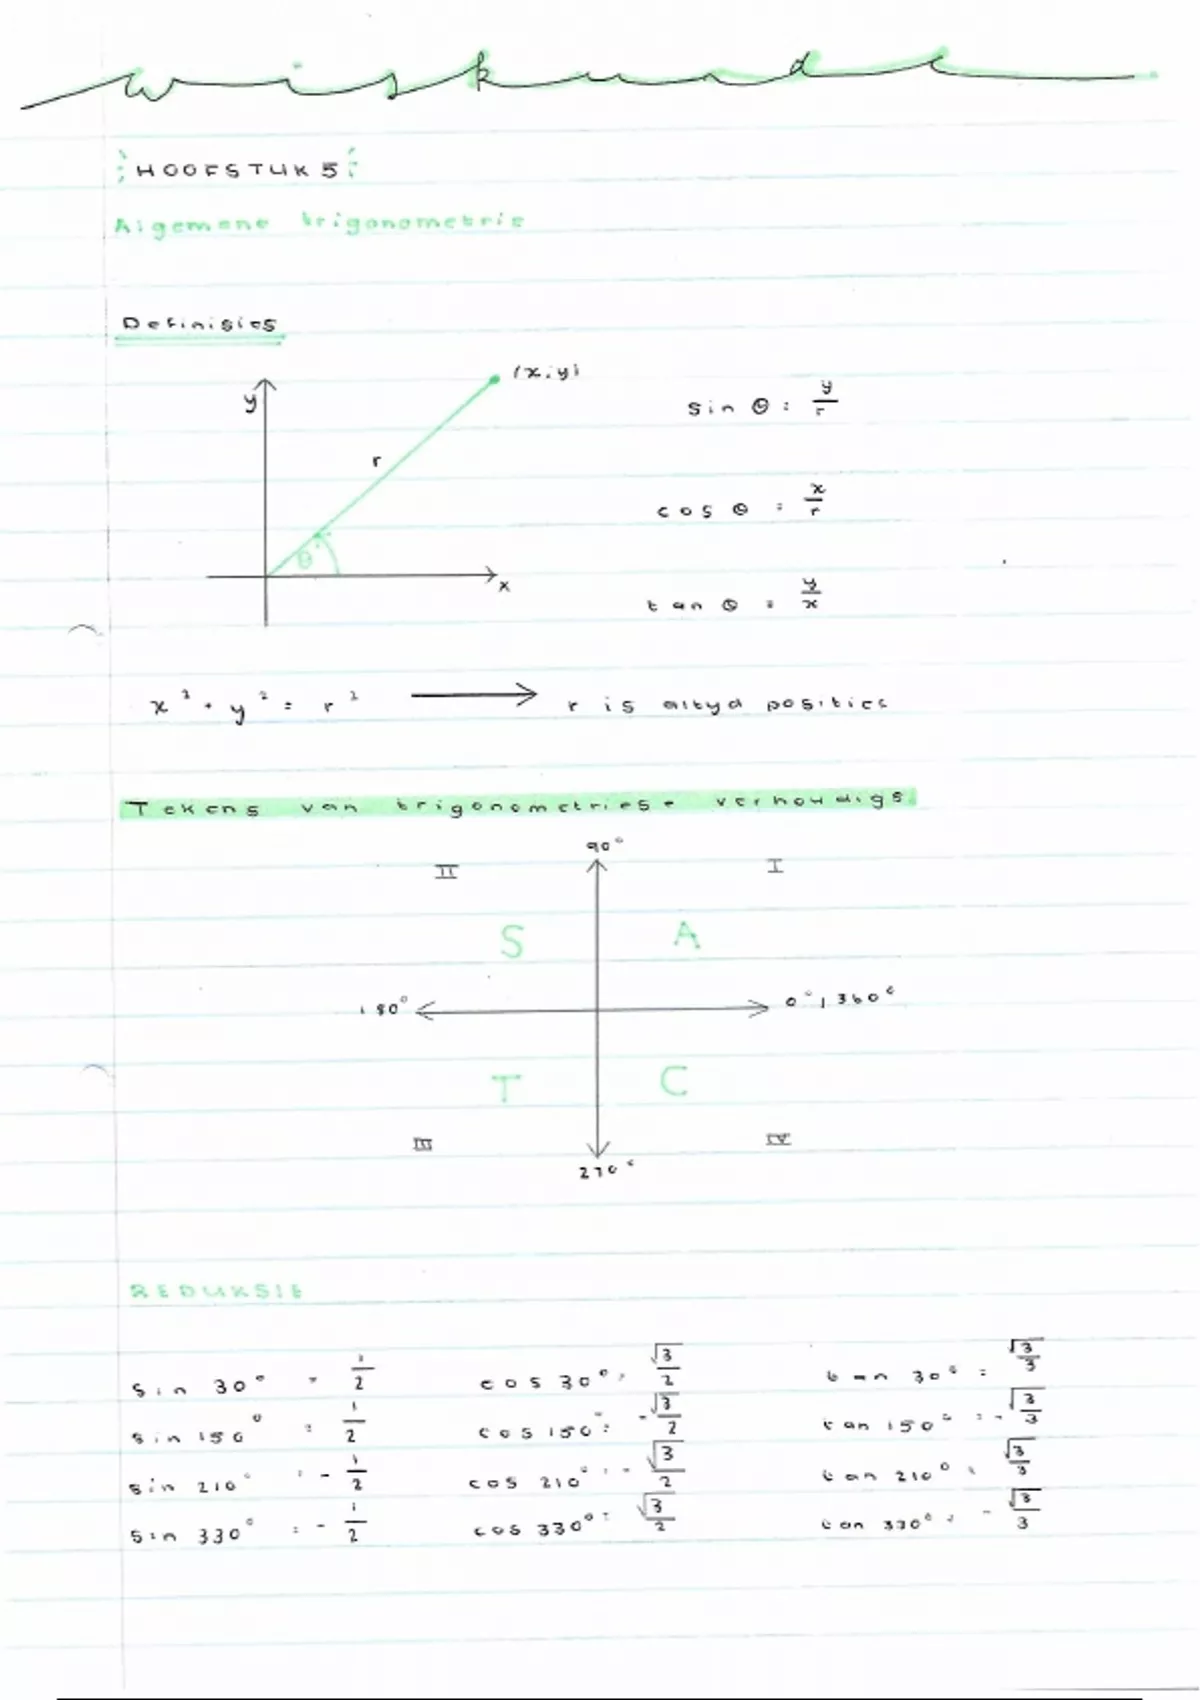 wiskunde
HOOFSTUK 5
Algemene trigonometrie
Definisies
y
(x;y)
r
θ
x
sin θ = y/r
cos θ = x/r
tan θ = y/x
x² + y² = r² → r is altyd positief
Tekens van trigonometriese verhoudigs.
90°
II I
S A
180° 0°, 360°
T C
III IV
270°
REDUKSIE
sin 30° = 1/2 cos 30° = √3/2 tan 30° = √3/3
sin 150° = 1/2 cos 150° = -√3/2 tan 150° = -√3/3
sin 210° = -1/2 cos 210° = -√3/2 tan 210° = √3/3
sin 330° = -1/2 cos 330° = √3/2 tan 330° = -√3/3